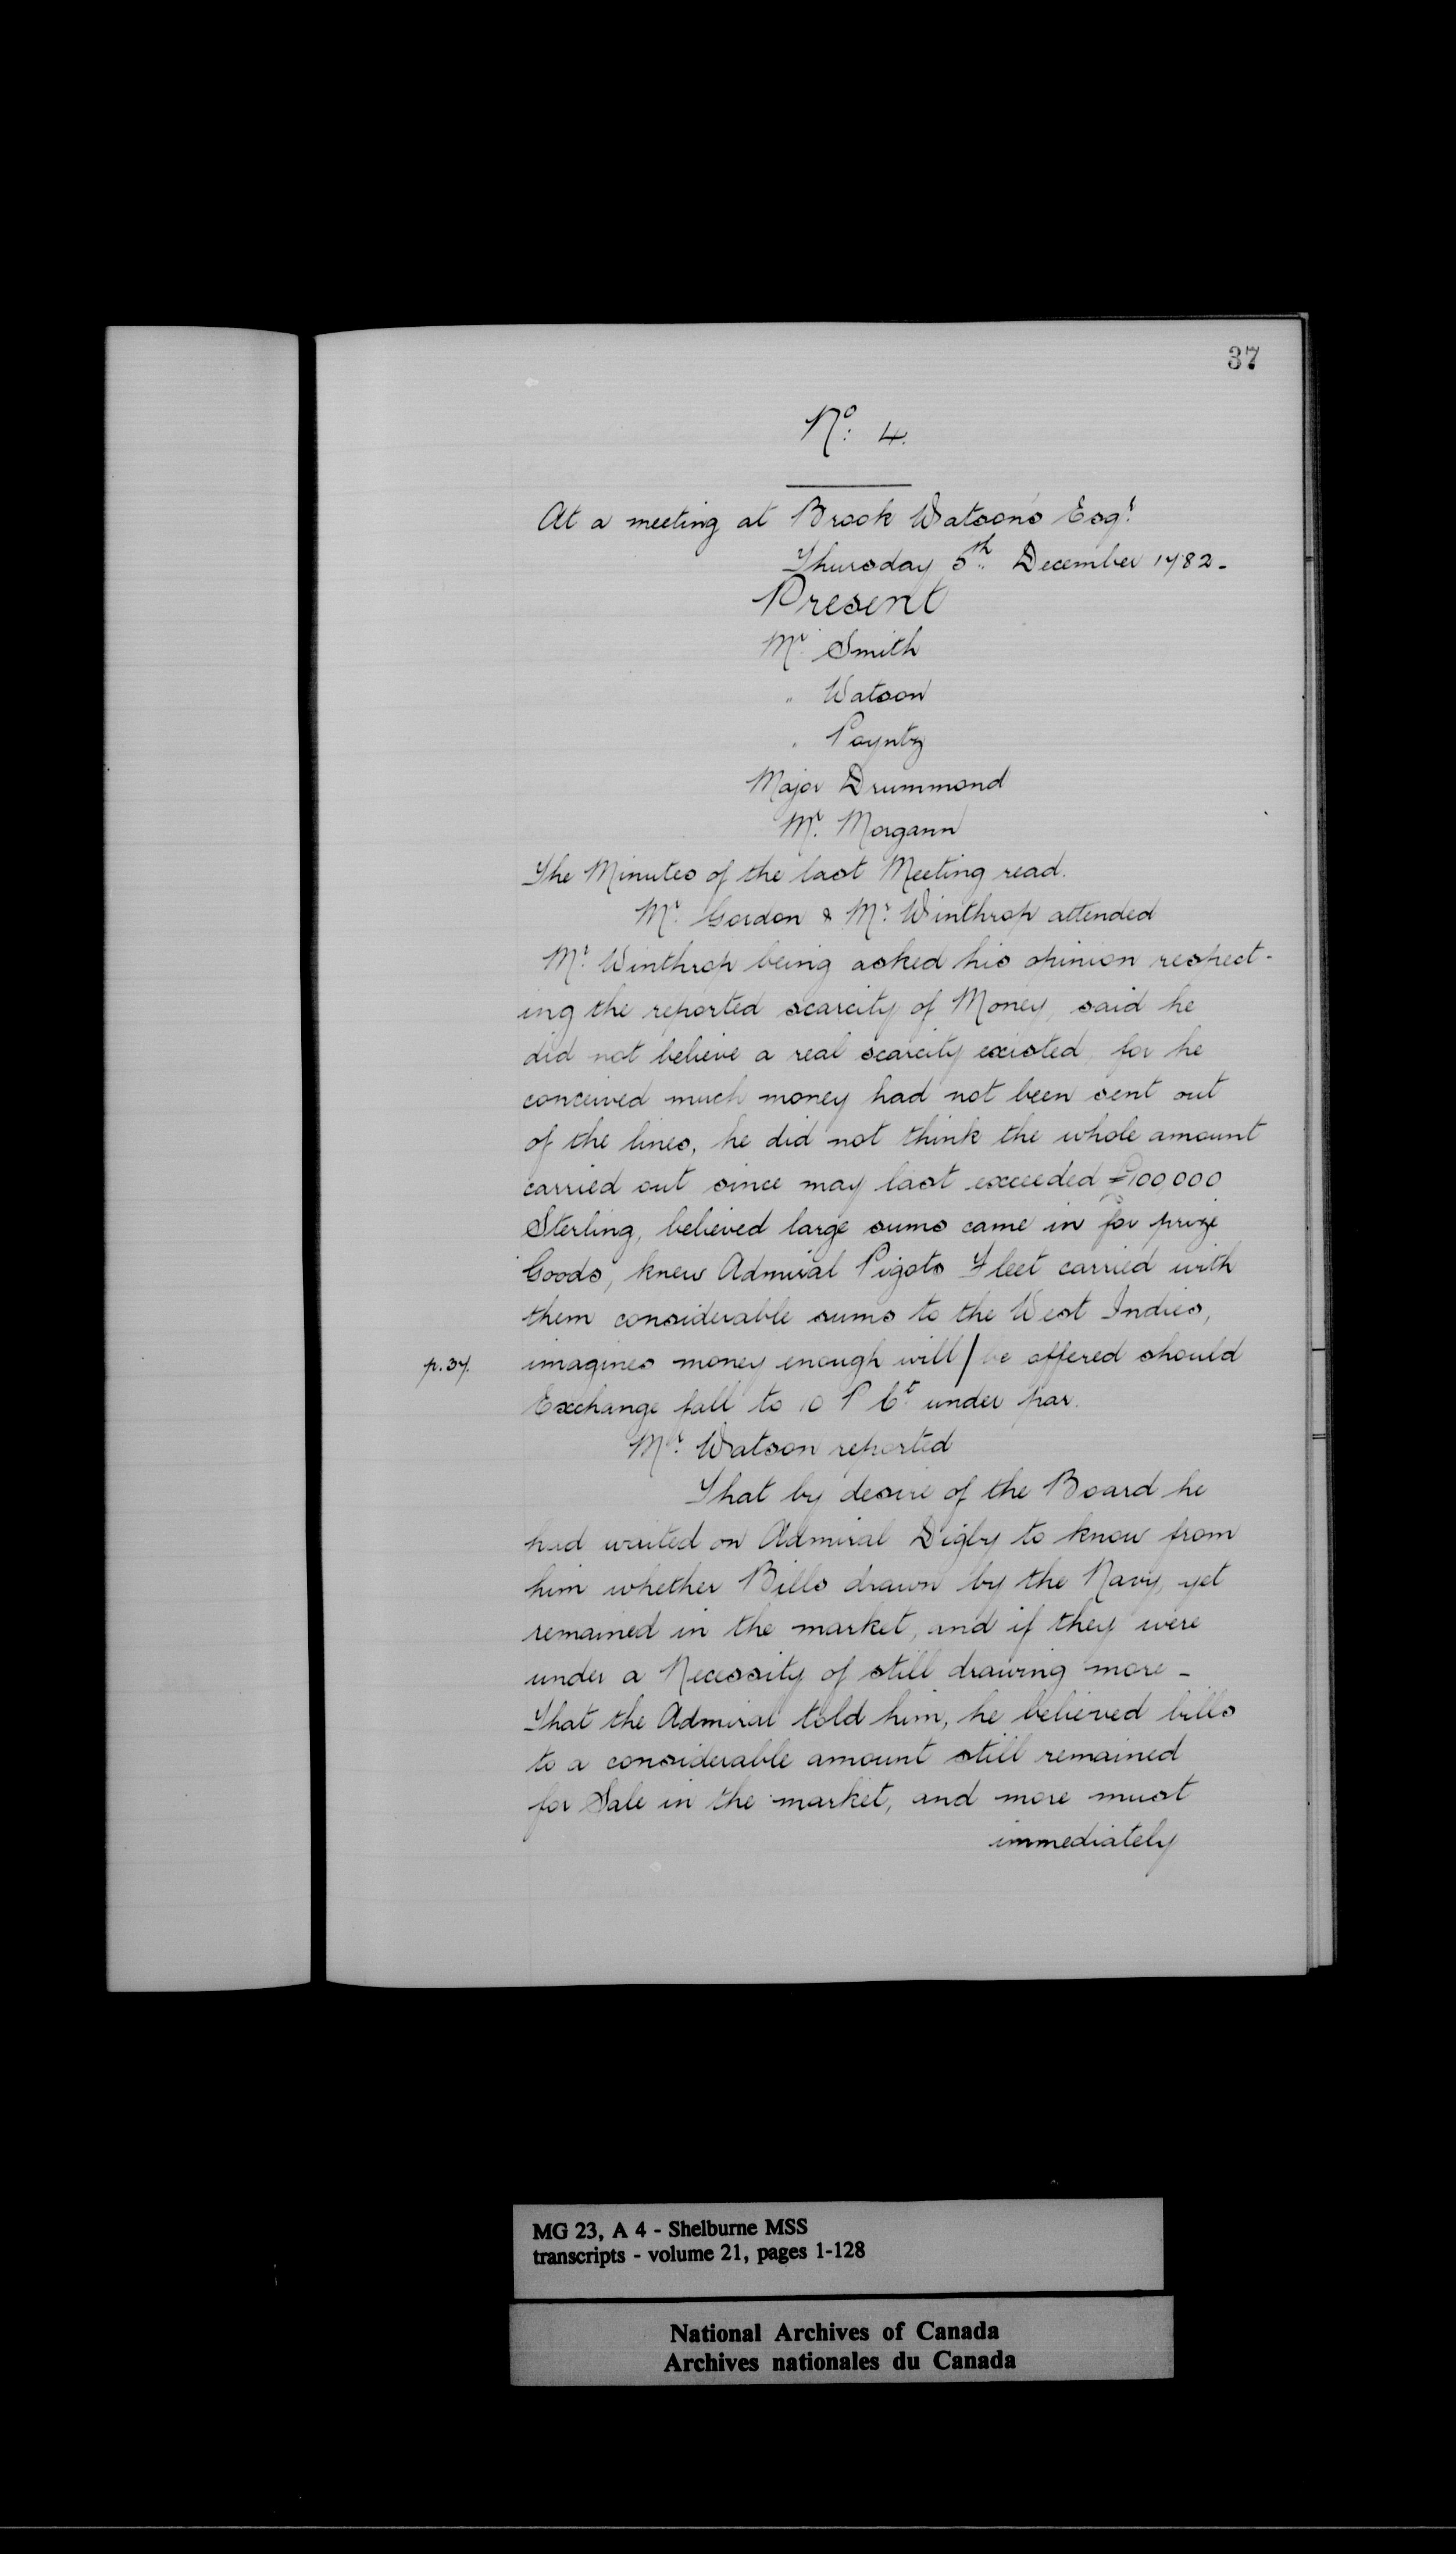 37
No: 4.
At a meeting at Brook Watson's Esqr.
Thursday 5th December 1782 -
Present
Mr. Smith
" Watson
" Poyntz
Major Drummond
Mr. Morgann
The Minutes of the last Meeting read.
Mr. Gordon & Mr. Winthrop attended
Mr. Winthrop being asked his opinion respect-
ing the reported scarcity of Money, said he
did not believe a real scarcity existed, for he
conceived much money had not been sent out
of the lines, he did not think the whole amount
carried out since may last exceeded £100,000
Sterling, believed large sums came in for prize
Goods, knew Admiral Pigots Fleet carried with
them considerable sums to the West Indies,
p.37. imagines money enough will / be offered should
Exchange fall to 10 P Ct. under par.
Mr. Watson reported
That by desire of the Board he
had waited on Admiral Digby to know from
him whether Bills drawn by the Navy, yet
remained in the market, and if they were
under a Necessity of still drawing more -
That the Admiral told him, he believed bills
to a considerable amount still remained
for Sale in the market, and more must
immediately
MG 23, A 4 - Shelburne MSS
transcripts - volume 21, pages 1-128
National Archives of Canada
Archives nationales du Canada